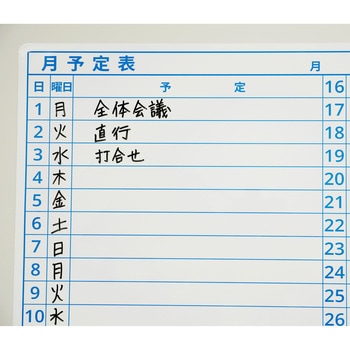 月予定表 月
日 曜日 予定 16
1 月 全体会議 17
2 火 直行 18
3 水 打合せ 19
4 木 20
5 金 21
6 土 22
7 日 23
8 月 24
9 火 25
10 水 26